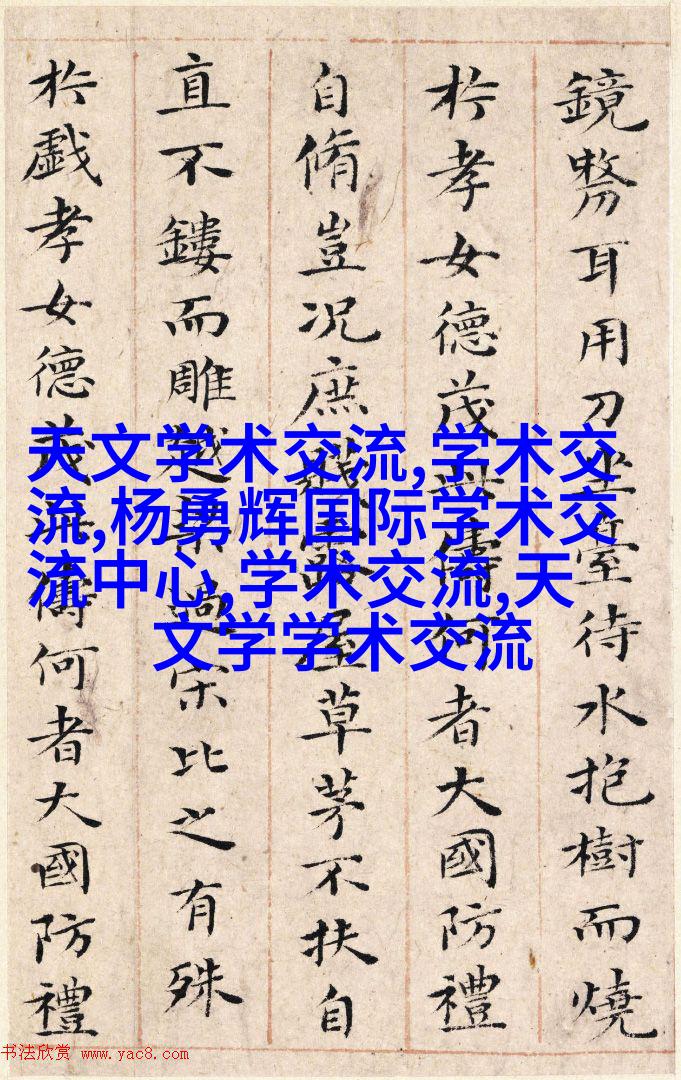 鏡剺耳用刀坐臺待水抱樹而燒
於孝女德茂此儔何者大國防禮
自脩豈况庶賤露屋草茅不扶自
直不鏤而雕越梁過宋比之有殊
於戯孝女德茂此儔何者大國防禮
天文学术交流,学术交
流,杨勇辉国际学术交
流中心,学术交流,天
文学学术交流
书法欣赏 www.yac8.com